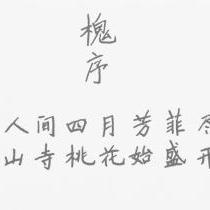 槐
序
人间四月芳菲尽
山寺桃花始盛开